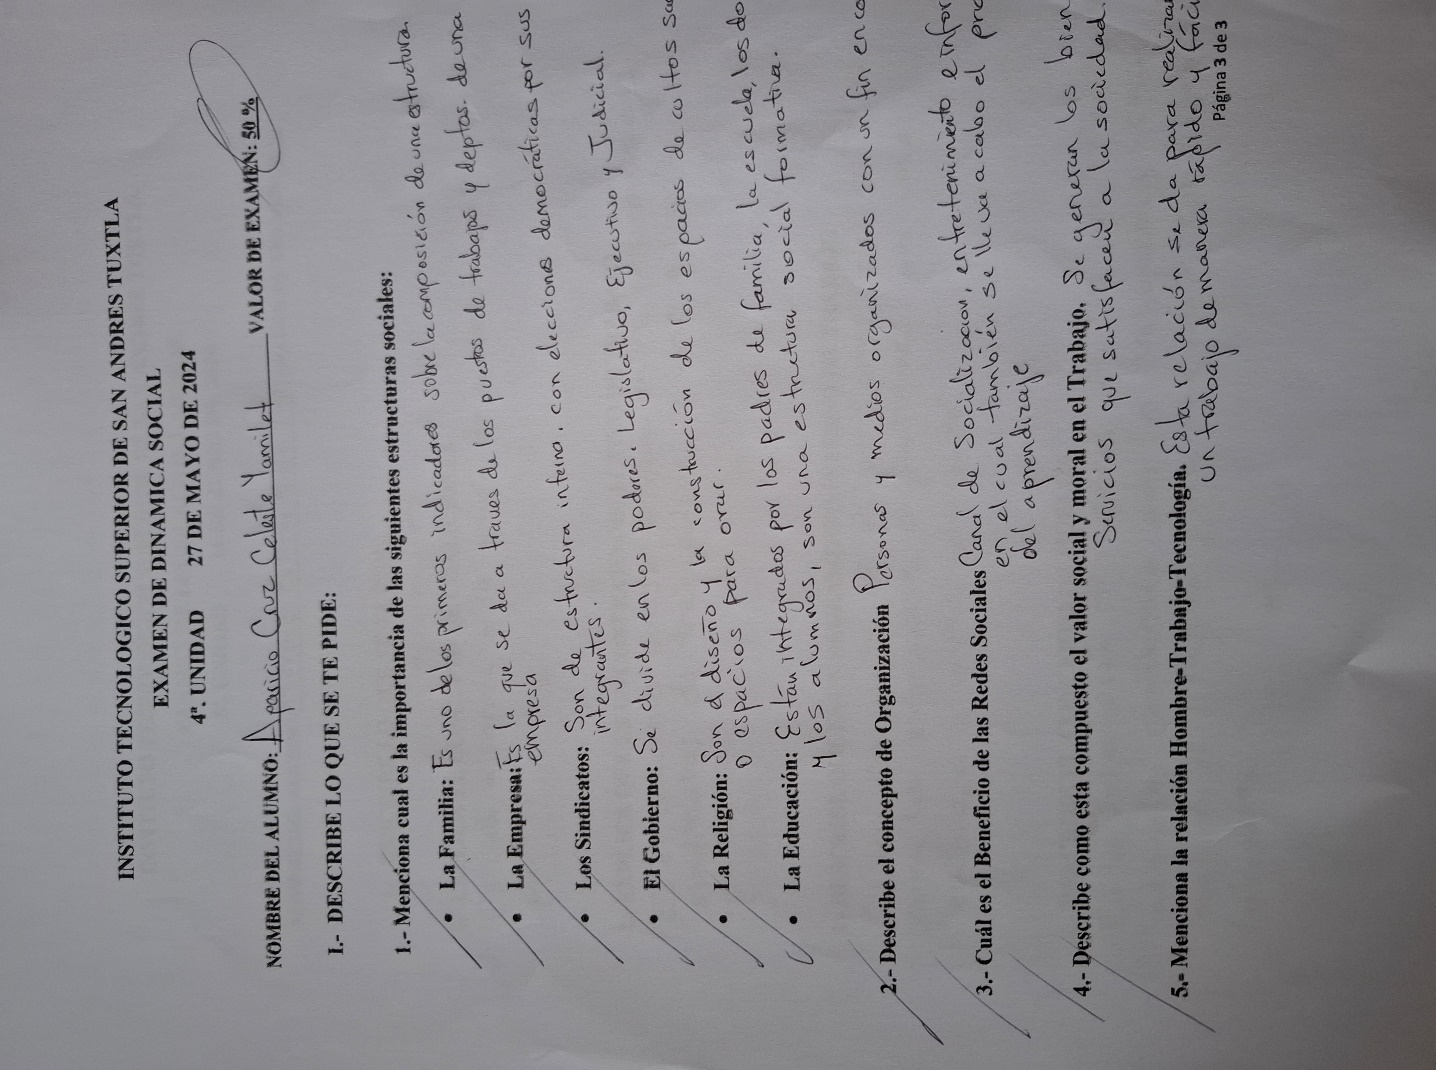 INSTITUTO TECNOLOGICO SUPERIOR DE SAN ANDRES TUXTLA
EXAMEN DE DINAMICA SOCIAL
4ª. UNIDAD 27 DE MAYO DE 2024
NOMBRE DEL ALUMNO: Aparicio Cruz Celeste Yamilet VALOR DE EXAMEN: 50 %
I.- DESCRIBE LO QUE SE TE PIDE:
1.- Menciona cual es la importancia de las siguientes estructuras sociales:
• La Familia: Es uno de los primeros indicadores sobre la composición de una estructura.
• La Empresa: Es la que se da a traves de los puestos de trabajos y deptos. de una
empresa
• Los Sindicatos: Son de estructura interna, con elecciones democráticas por sus
integrantes.
• El Gobierno: Se divide en los poderes. Legislativo, Ejecutivo y Judicial.
• La Religión: Son el diseño y la construcción de los espacios de cultos
o espacios para orar.
• La Educación: Están integrados por los padres de familia, la escuela, los
y los alumnos, son una estructura social formativa.
2.- Describe el concepto de Organización Personas y medios organizados con un fin en
3.- Cuál es el Beneficio de las Redes Sociales Canal de Socialización, entretenimiento e
en el cual también se lleva a cabo el
del aprendizaje
4.- Describe como esta compuesto el valor social y moral en el Trabajo. Se generan los bien
Servicios que satisfacen a la sociedad.
5.- Menciona la relación Hombre-Trabajo-Tecnología. Esta relación se da para realizar
un trabajo de manera rápido y
Página 3 de 3